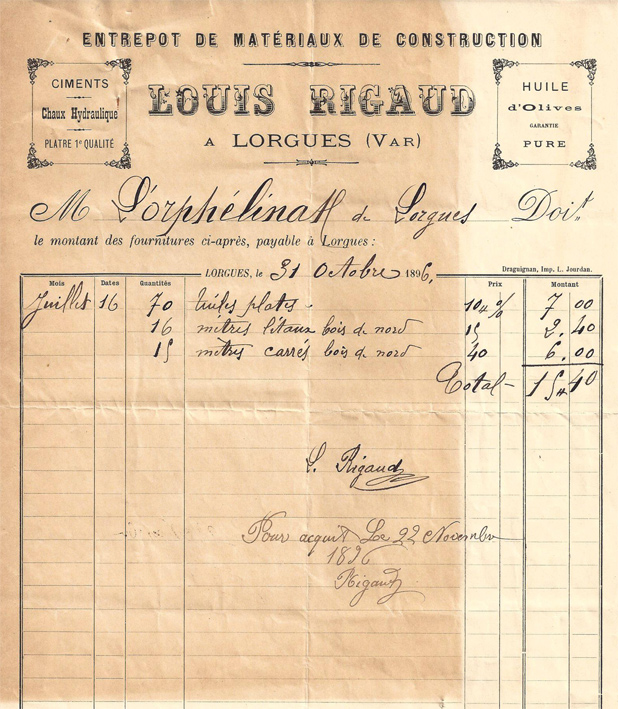 ENTREPOT DE MATÉRIAUX DE CONSTRUCTION
CIMENTS
Chaux Hydraulique
PLATRE 1e QUALITÉ
LOUIS RIGAUD
A LORGUES (VAR)
HUILE
d'Olives
GARANTIE
PURE
M L'orphélinat de Lorgues Doit
le montant des fournitures ci-après, payable à Lorgues :
LORGUES, le 31 Octobre 1896.
Draguignan, Imp. L. Jourdan.
Mois Dates Quantités Prix Montant
Juillet 16 70 tuiles plates 10 % 7 00
16 mètres litaux bois de nord 15 2.40
15 mètres carrés bois de nord 40 6.00
Total 15 40
L. Rigaud
Pour acquit Le 22 Novembre
1896
Rigaud